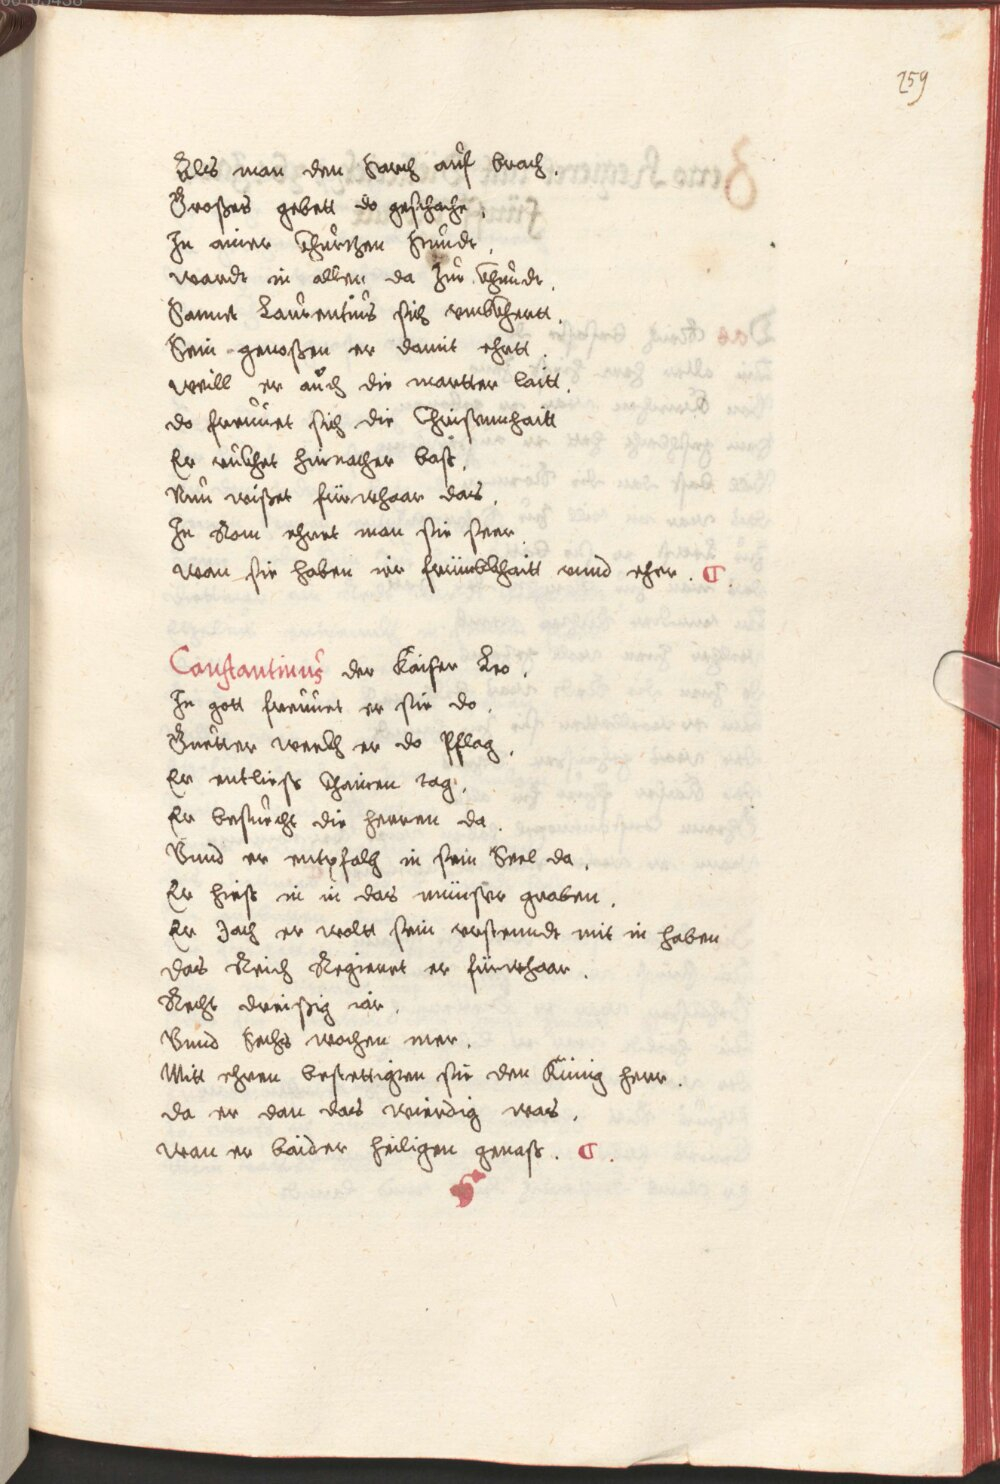 159
Als man den Sarch auf brach.
Großes gebett do geschache.
In ainer Khurtzen Stundt.
wardt in allen da Zur Khundt.
Sannct Laurentius sich vmbkhertt.
Sein genoßen er damit ehrtt.
weill er auch die martter laitt.
do freuuet sich die Christennhaitt
Er rukhet hinnacher baß.
Nun wißet fürwhaar das.
In Rom ehret man sie seer.
wan sie haben ir freundtkhaitt vnnd eher.
Constantinus der Kaiser Leo.
In gott freuuet er sie do.
Guetter werkh er do Pflag.
Er entließ Khainen tag.
Er besuecht die herren da.
Vnnd er entpfalch in sein Seel da.
Er hieß in in das münster graben.
Er Jach er woltt sein vrstenndt mit in haben
das Reich Regieret er fürwhaar.
Recht dreißig iar.
Vnnd Sechs wochen mer.
Mitt ehren bestettigten sie den Künig herr.
da er dan das wierdig was.
wan er baider heiligen genaß.